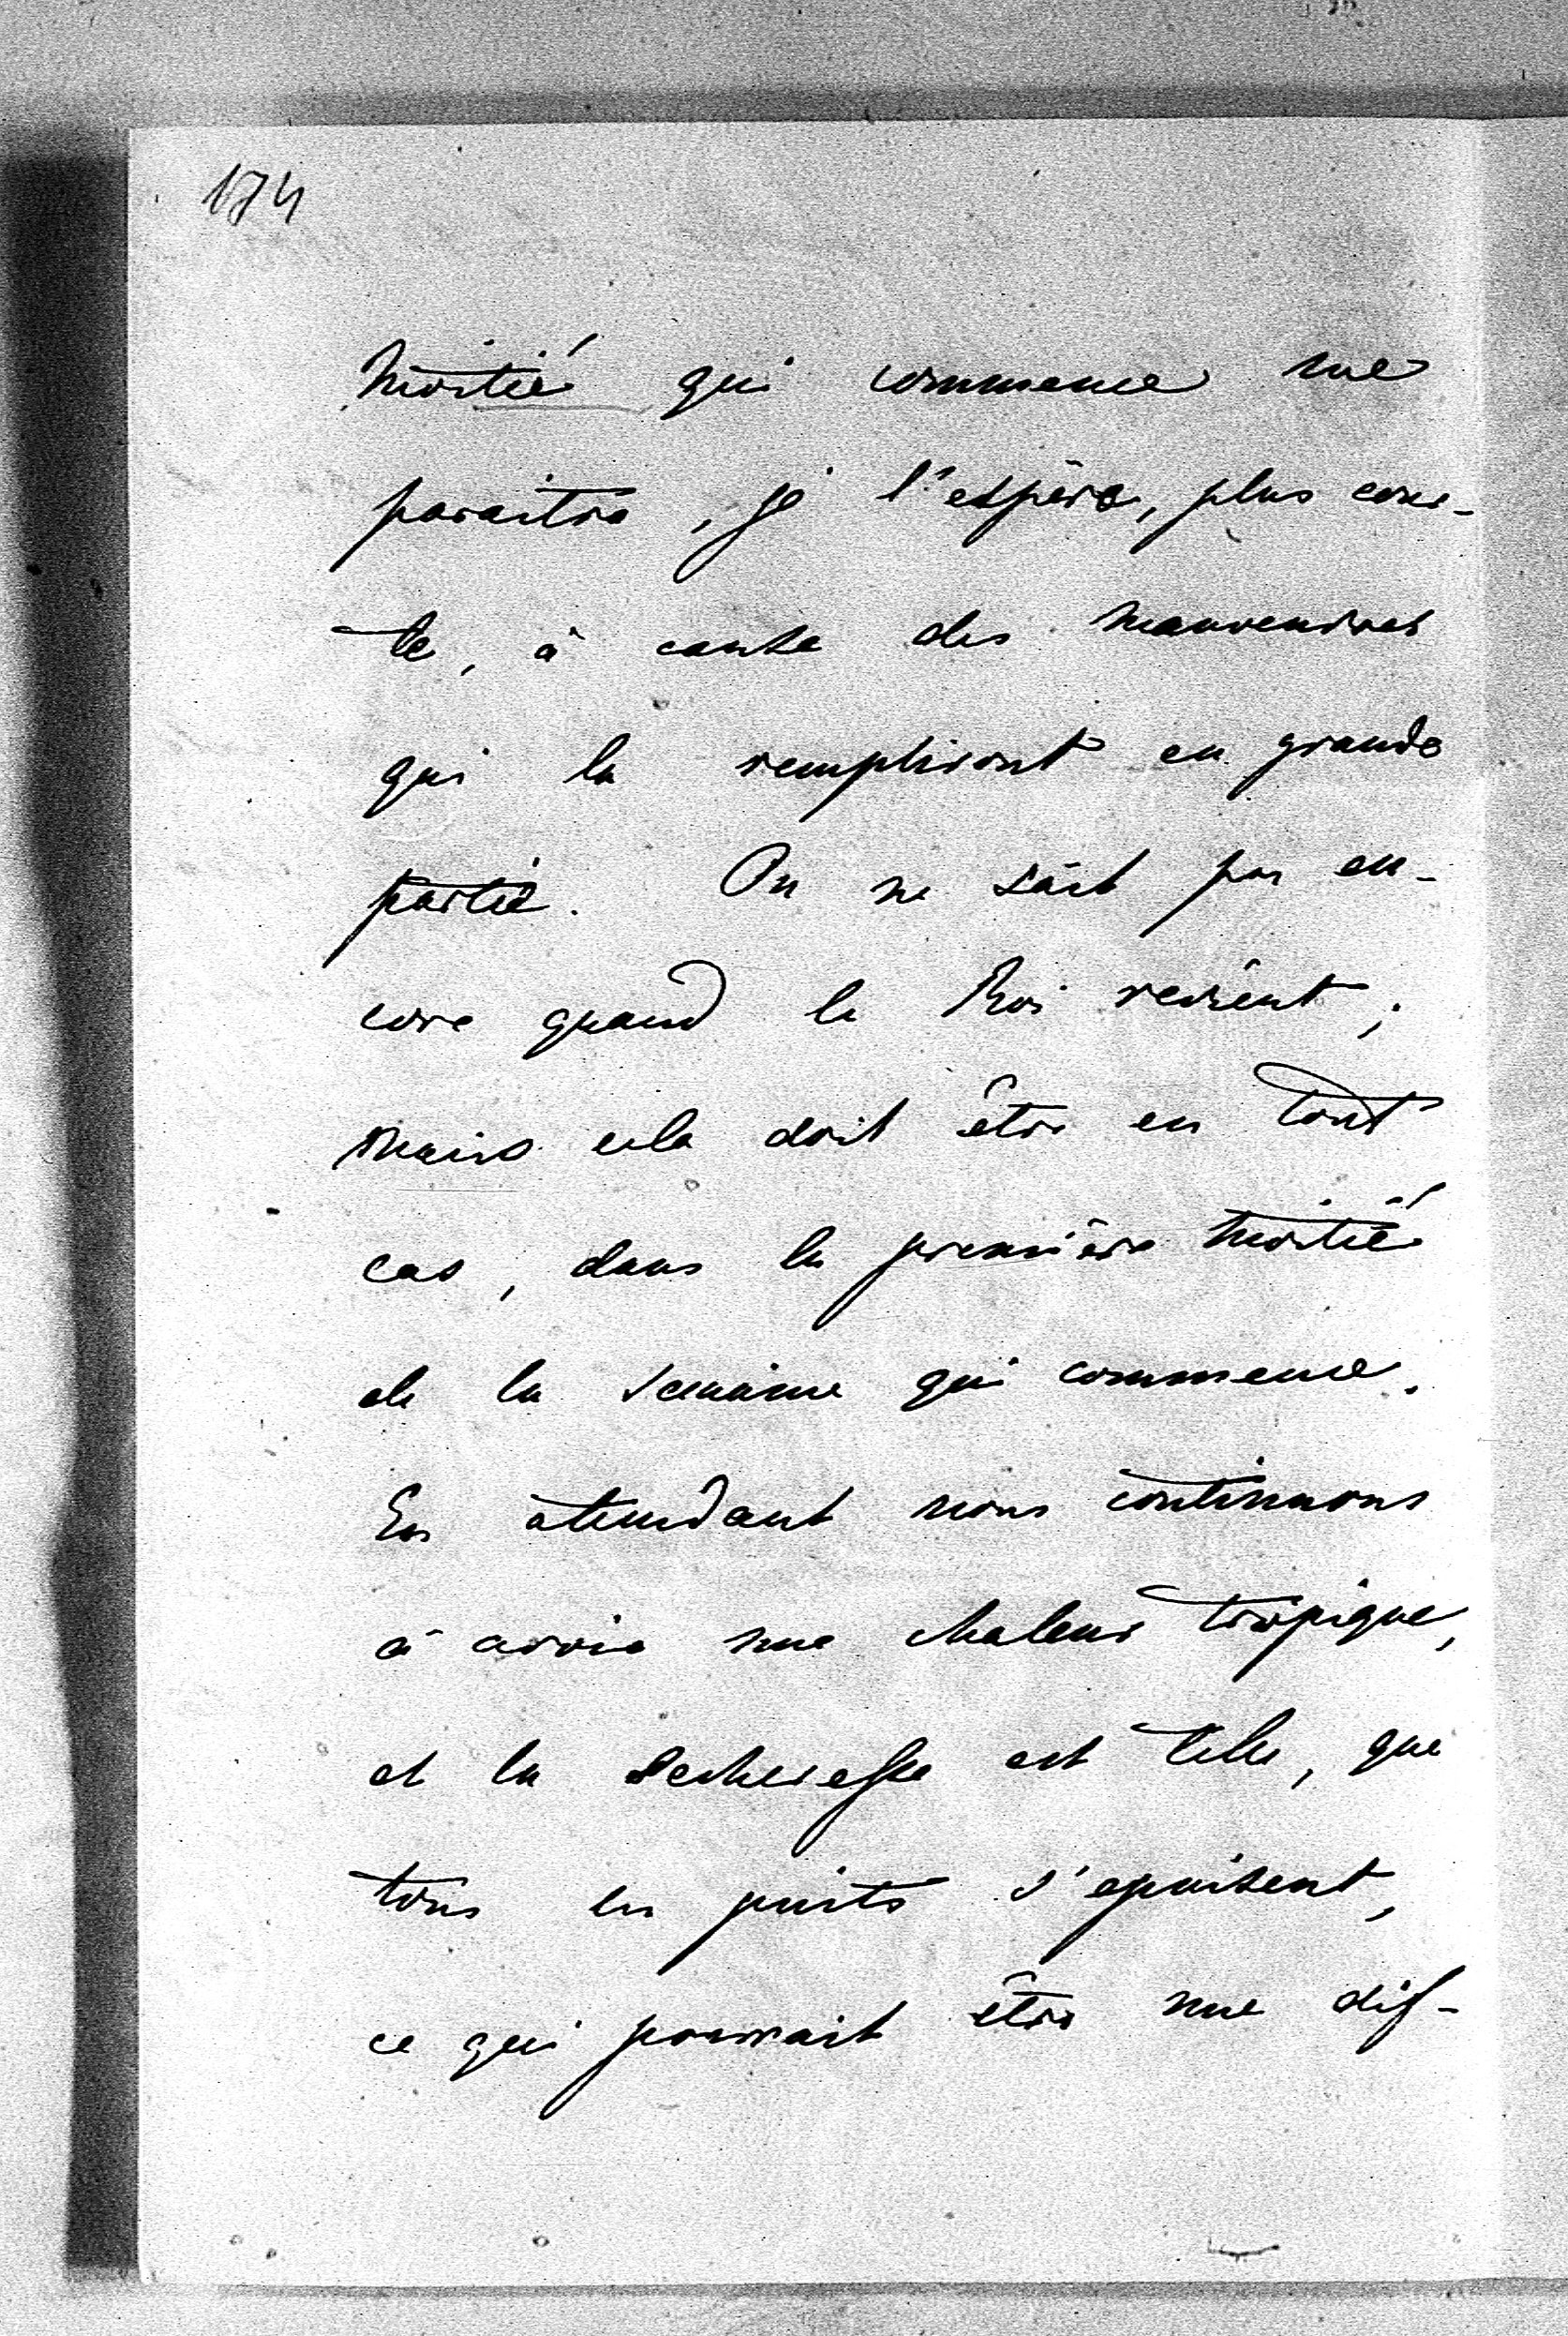 174
moitié qui commence me
paraitra, je l'espère, plus cour-
te, à cause des manœuvres
qui la rempliront en grande
partie. On ne sait pas en-
core quand le Roi revient;
mais cela doit être en tout
cas, dans la première moitié
de la semaine qui commence.
En attendant nous continuons
à avoir une chaleur tropique,
et la secheresse est telle, que
tous les puits s'epuisent,
ce qui pourrait être une dif-